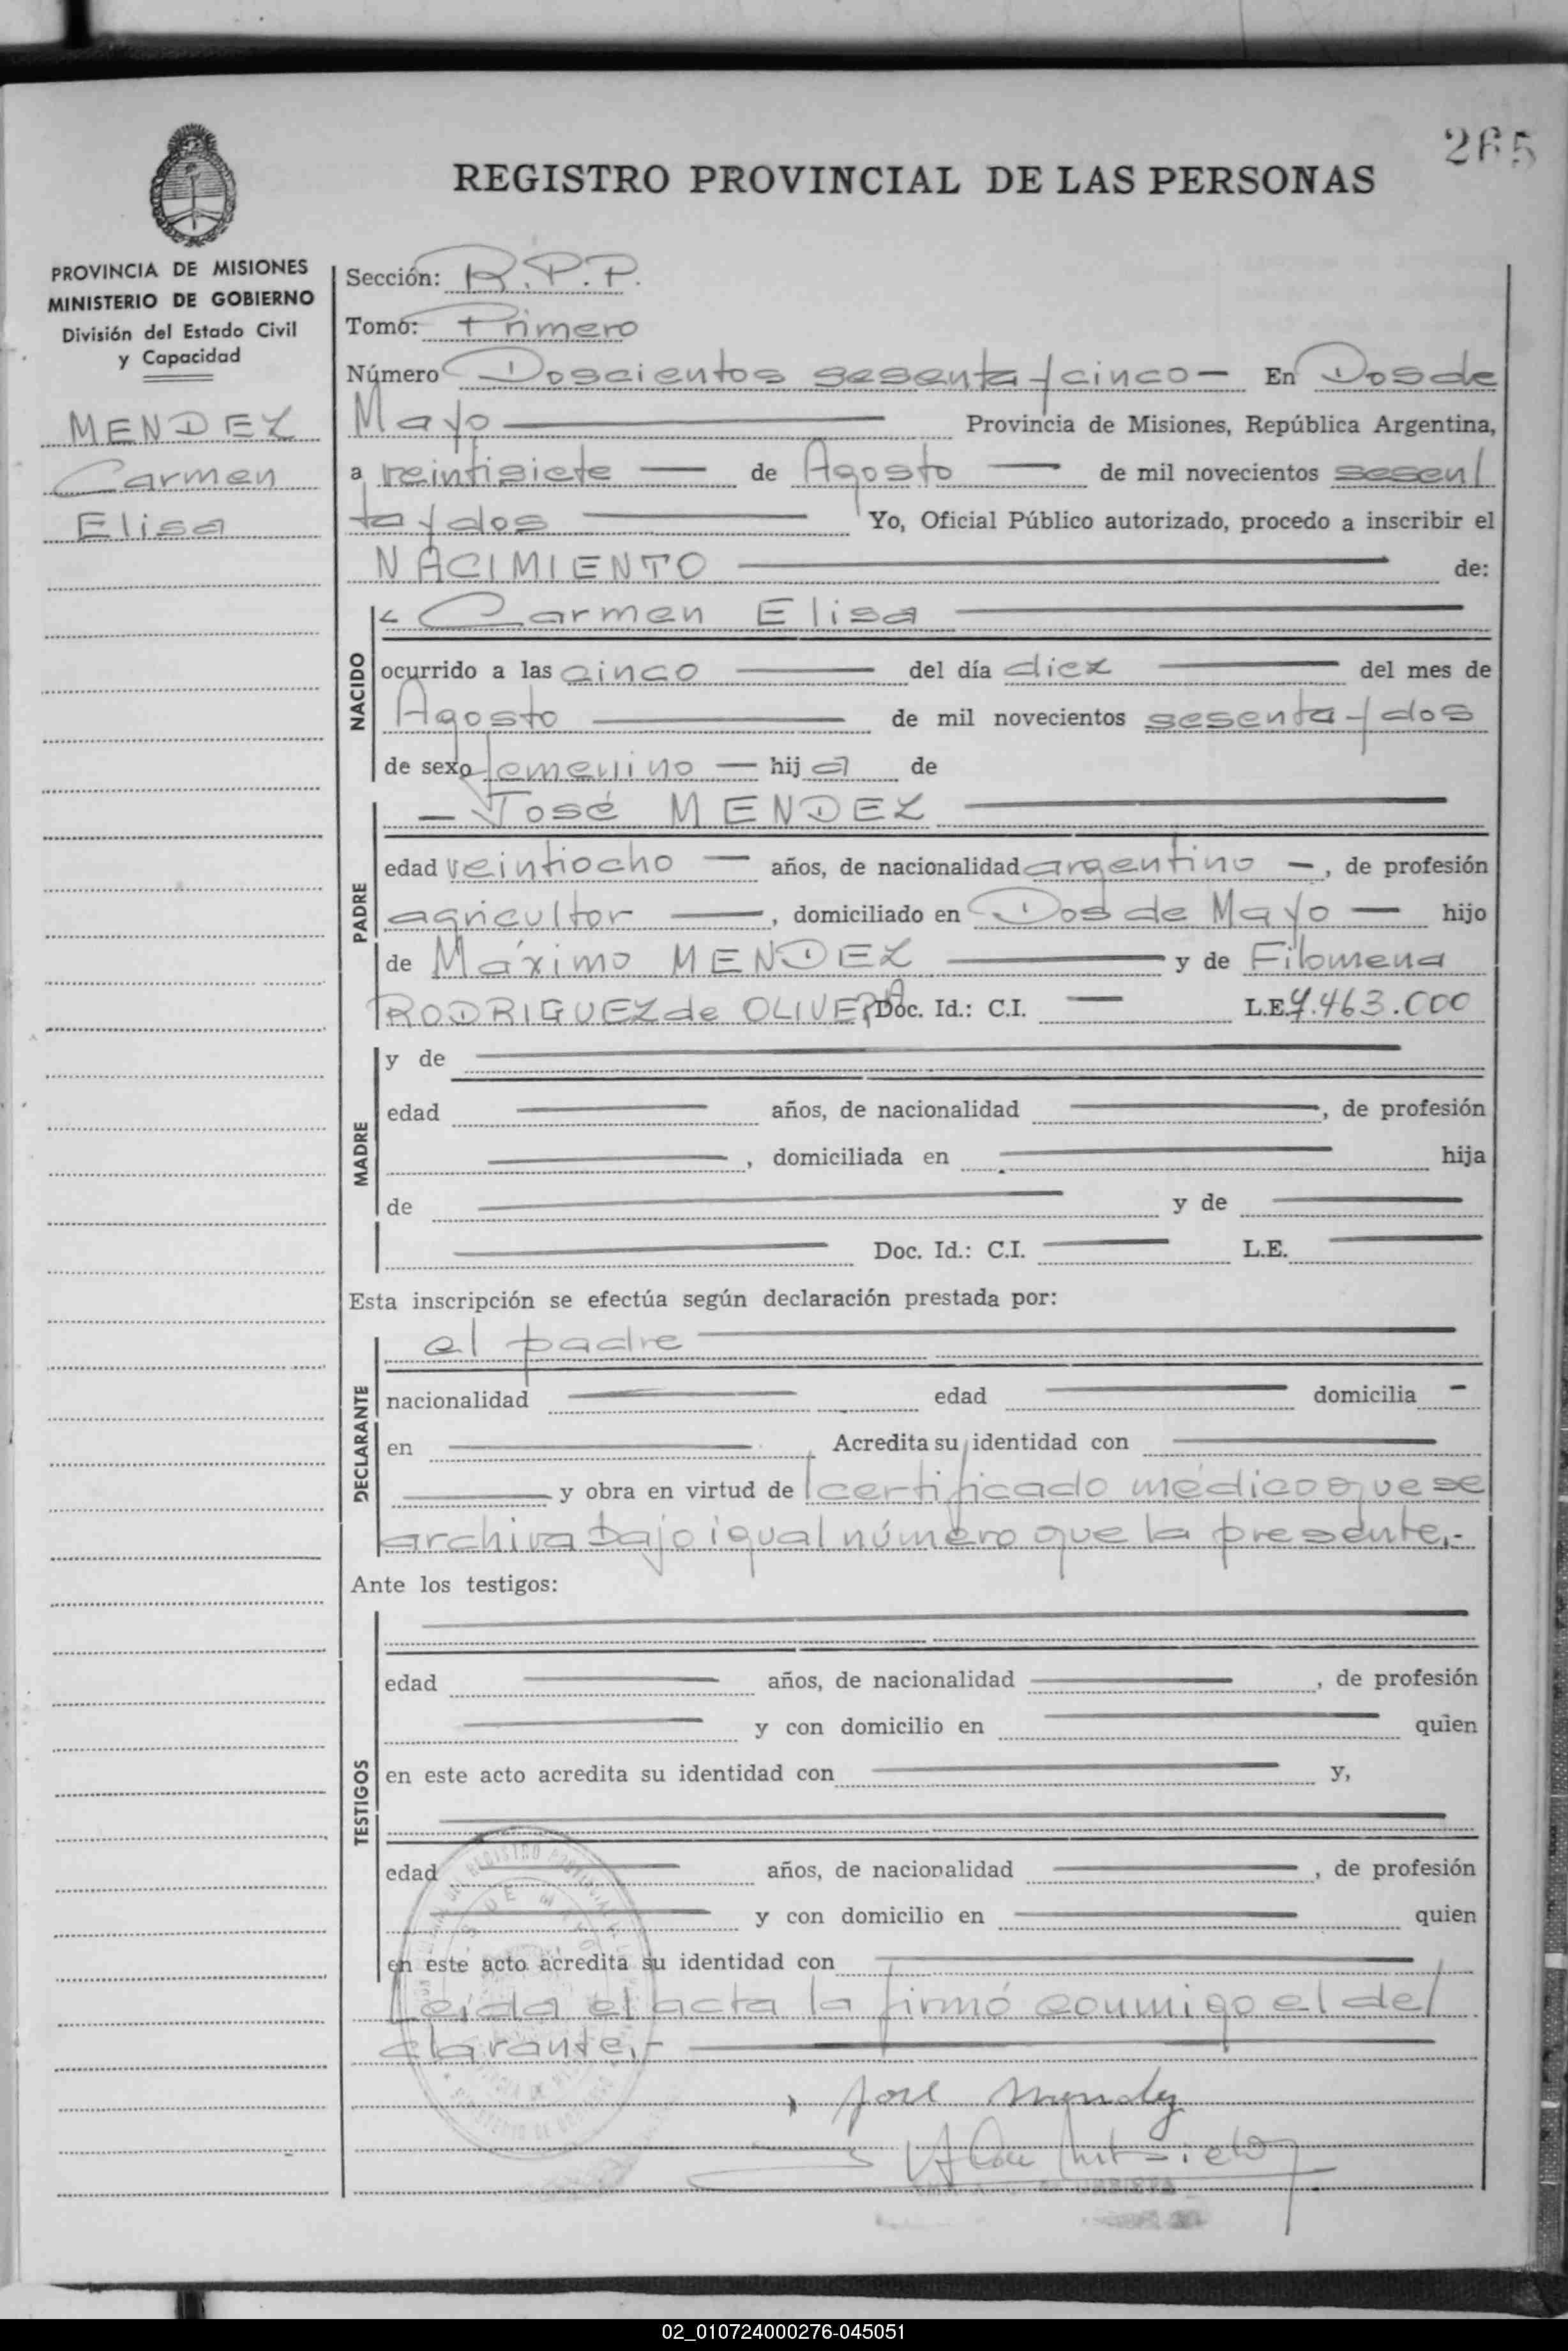 265
REGISTRO PROVINCIAL DE LAS PERSONAS
PROVINCIA DE MISIONES
MINISTERIO DE GOBIERNO
División del Estado Civil
y Capacidad
MENDEZ
Carmen
Elisa
Sección: R.P.P.
Tomo: Primero
Número Doscientos sesenta y cinco — En Dos de
Mayo — Provincia de Misiones, República Argentina,
a veintisiete — de Agosto — de mil novecientos sesen/
ta y dos — Yo, Oficial Público autorizado, procedo a inscribir el
NACIMIENTO — de:
NACIDO
Carmen Elisa —
ocurrido a las cinco — del día diez — del mes de
Agosto — de mil novecientos sesenta y dos
de sexo femenino — hija de
PADRE
— José MENDEZ —
edad veintiocho — años, de nacionalidad argentino —, de profesión
agricultor —, domiciliado en Dos de Mayo — hijo
de Máximo MENDEZ — y de Filomena
RODRIGUEZ de OLIVERA Doc. Id.: C.I. — L.E. 7.463.000
MADRE
y de —
edad — años, de nacionalidad —, de profesión
—, domiciliada en — hija
de — y de —
— Doc. Id.: C.I. — L.E. —
Esta inscripción se efectúa según declaración prestada por:
DECLARANTE
el padre —
nacionalidad — edad — domicilia —
en — Acredita su identidad con —
— y obra en virtud de certificado médico que se
archiva bajo igual número que la presente.-
Ante los testigos:
TESTIGOS
edad — años, de nacionalidad —, de profesión
— y con domicilio en — quien
en este acto acredita su identidad con — y,
edad — años, de nacionalidad —, de profesión
— y con domicilio en — quien
en este acto acredita su identidad con —
Leída el acta la firmó conmigo el de/
clarante.- —
José Mendez
02_010724000276-045051